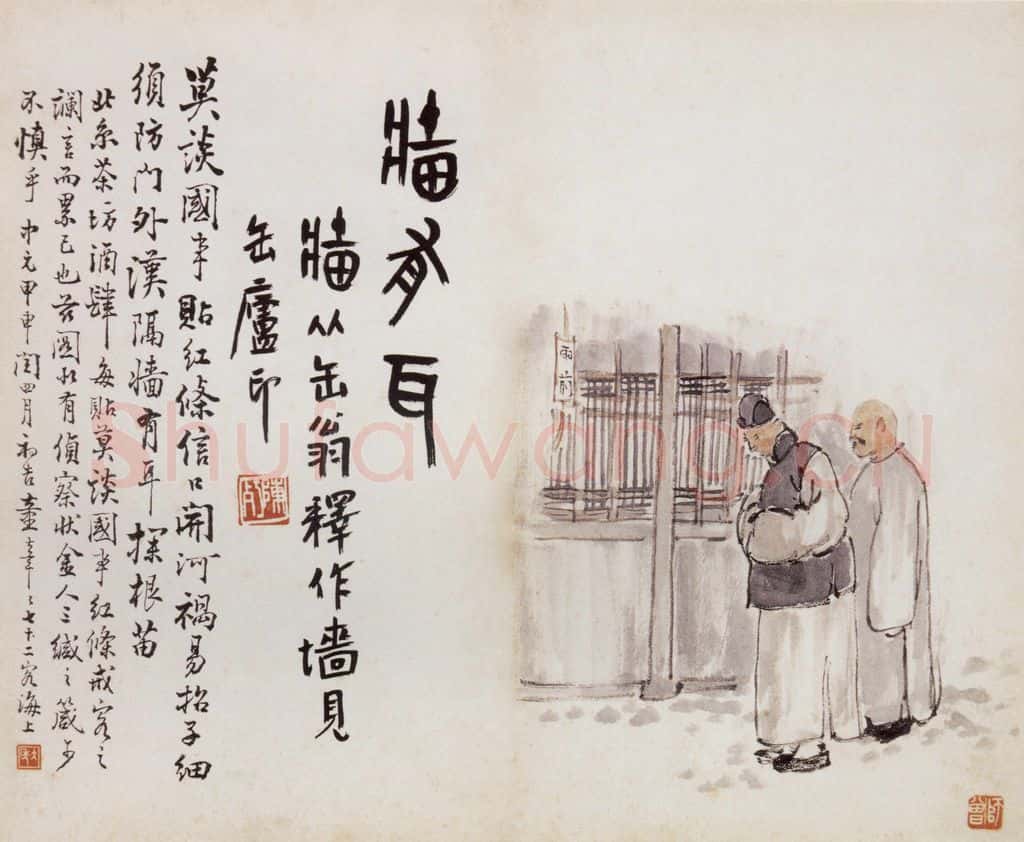 雨前
師曾
牆有耳
牆从缶翁釋作墻見
缶廬印
莫談國事貼紅條信口開河禍易招子細
須防門外漢隔牆有耳探根苗
北京茶坊酒肆每貼莫談國事紅條戒客之
讕言而累己也茲圖有偵察狀金人三緘之箴可
不慎乎中元甲申閏四月初吉七十二客海上
Shufawang.CN